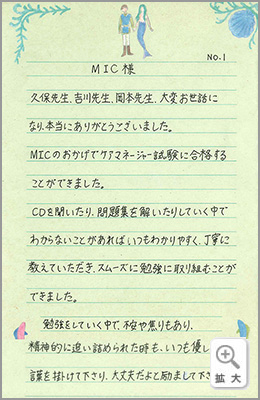 No.1
MIC様
久保先生、吉川先生、岡本先生、大変お世話に
なり、本当にありがとうございました。
MICのおかげでケアマネージャー試験に合格する
ことができました。
CDを聞いたり、問題集を解いたりしていく中で
わからないことがあればいつもわかりやすく、丁寧に
教えていただき、スムーズに勉強に取り組むことが
できました。
勉強をしていく中で、不安や焦りもあり、
精神的に追い詰められた時も、いつも優し
言葉を掛けて下さり、大丈夫だよと励まして下さ
拡大